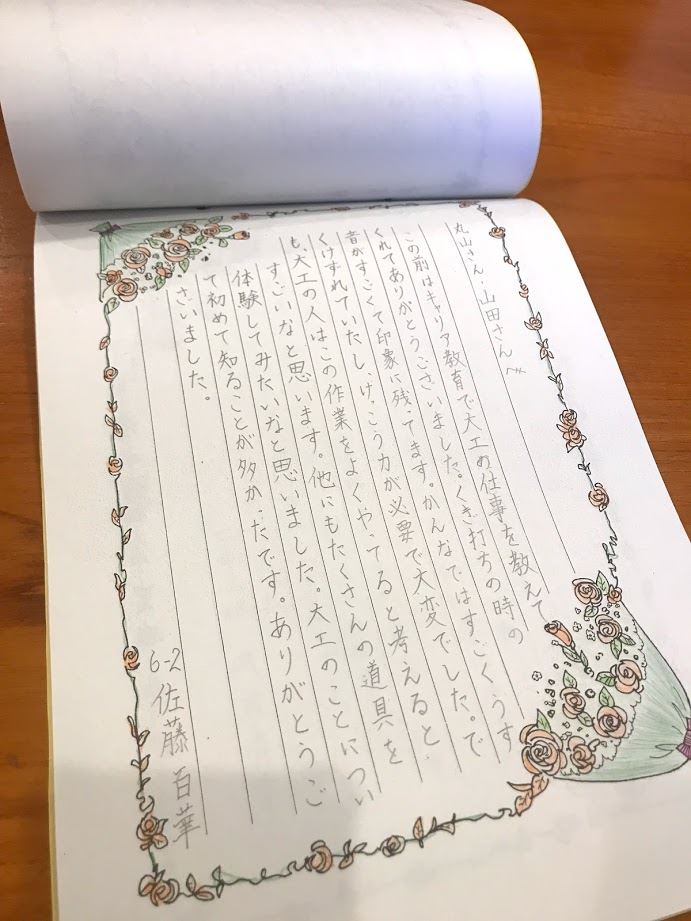 丸山さん・山田さんへ
この前はキャリア教育で大工の仕事を教えて
くれてありがとうございました。くぎ打ちの時の
音がすごくて印象に残ってます。かんなではすごくうす
くけずれていたし、けっこう力が必要で大変でした。で
も大工の人はこの作業をよくやってると考えると、
すごいなと思います。他にもたくさんの道具を
体験してみたいなと思いました。大工のことについ
て初めて知ることが多かったです。ありがとうご
ざいました。
6-2 佐藤 百華